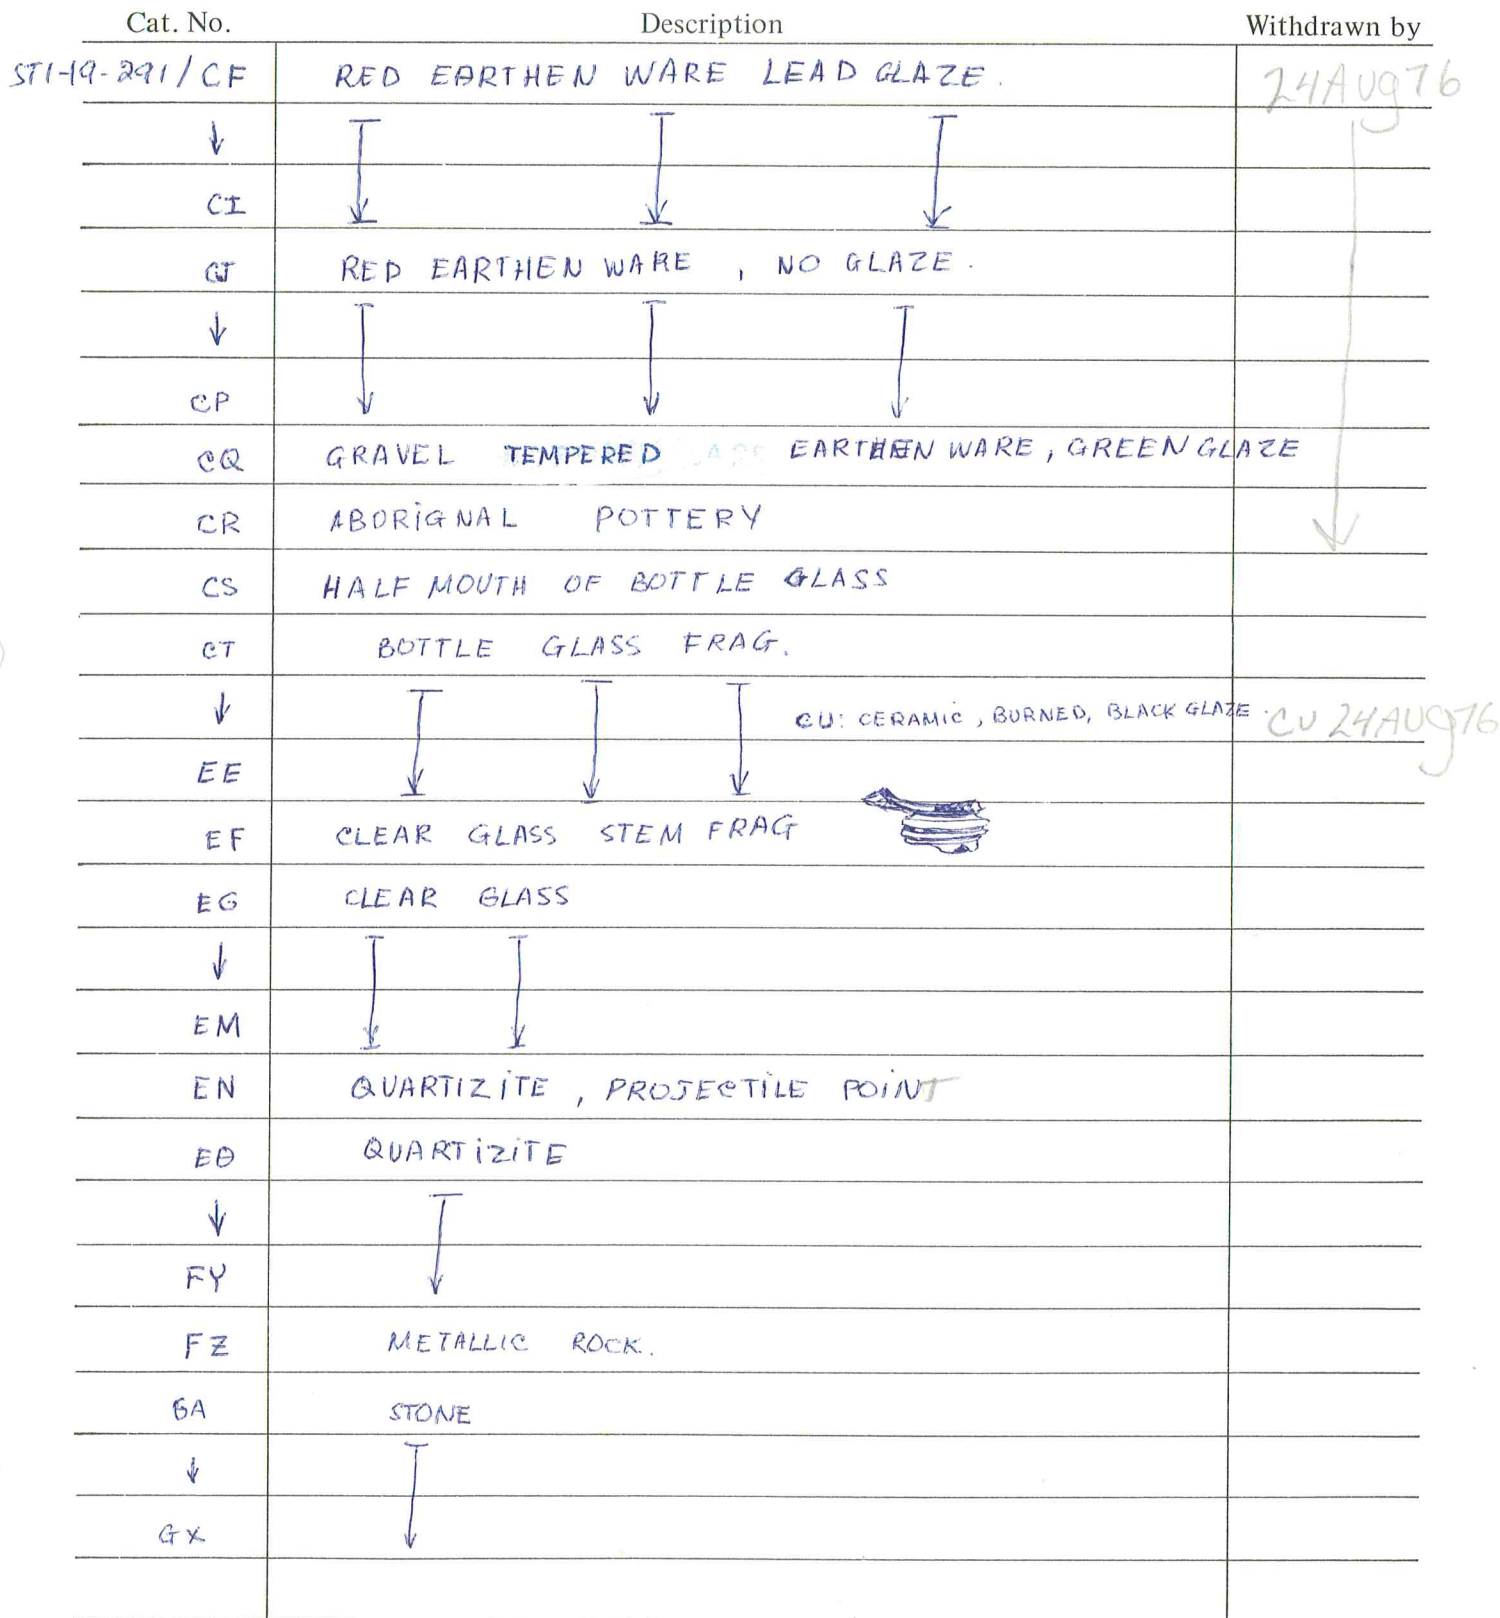 Cat. No. Description Withdrawn by
ST1-19-291/CF RED EARTHEN WARE LEAD GLAZE. 24Aug76
↓
CI
CJ RED EARTHEN WARE , NO GLAZE.
↓
CP
CQ GRAVEL TEMPERED EARTHEN WARE, GREEN GLAZE
CR ABORIGNAL POTTERY
CS HALF MOUTH OF BOTTLE GLASS
CT BOTTLE GLASS FRAG.
↓ CU: CERAMIC, BURNED, BLACK GLAZE. CU 24AUG76
EE
EF CLEAR GLASS STEM FRAG
EG CLEAR GLASS
↓
EM
EN QUARTIZITE, PROJECTILE POINT
EO QUARTIZITE
↓
FY
FZ METALLIC ROCK.
GA STONE
↓
GX